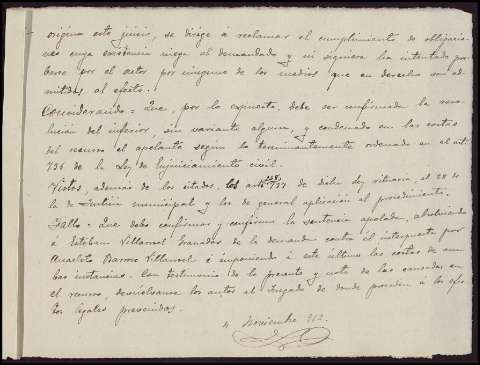 origina este juicio, se dirige á reclamar el cumplimiento de obligacio-
nes cuya existencia niega el demandado y ni siquiera ha intentado pro-
barse por el actor por ninguno de los medios que en derecho son ad-
mitidos al efecto.
Considerando = Que, por lo expuesto, debe ser confirmada la reso-
lución del inferior, sin variante alguna, y condenado en las costas
del recurso el apelante según lo terminantemente ordenado en el art.
736 de la Ley de Enjuiciamiento civil.
Vistos, además de los citados, los arts. 737 de dicha ley rituaria, el 28 de
la de Justicia municipal y los de general aplicación al procedimiento.
Fallo = Que debo confirmar y confirmo la sentencia apelada, absolviendo
á Esteban Villarroel Granados de la demanda contra él interpuesta por
Anacleto Barrio Villarroel é imponiendo á este último las costas de am-
bas instancias. Con testimonio de la presente y nota de las causadas en
el recurso, devuélvanse los autos al Juzgado de donde proceden á los efec-
tos legales prevenidos.
4 Noviembre 912.